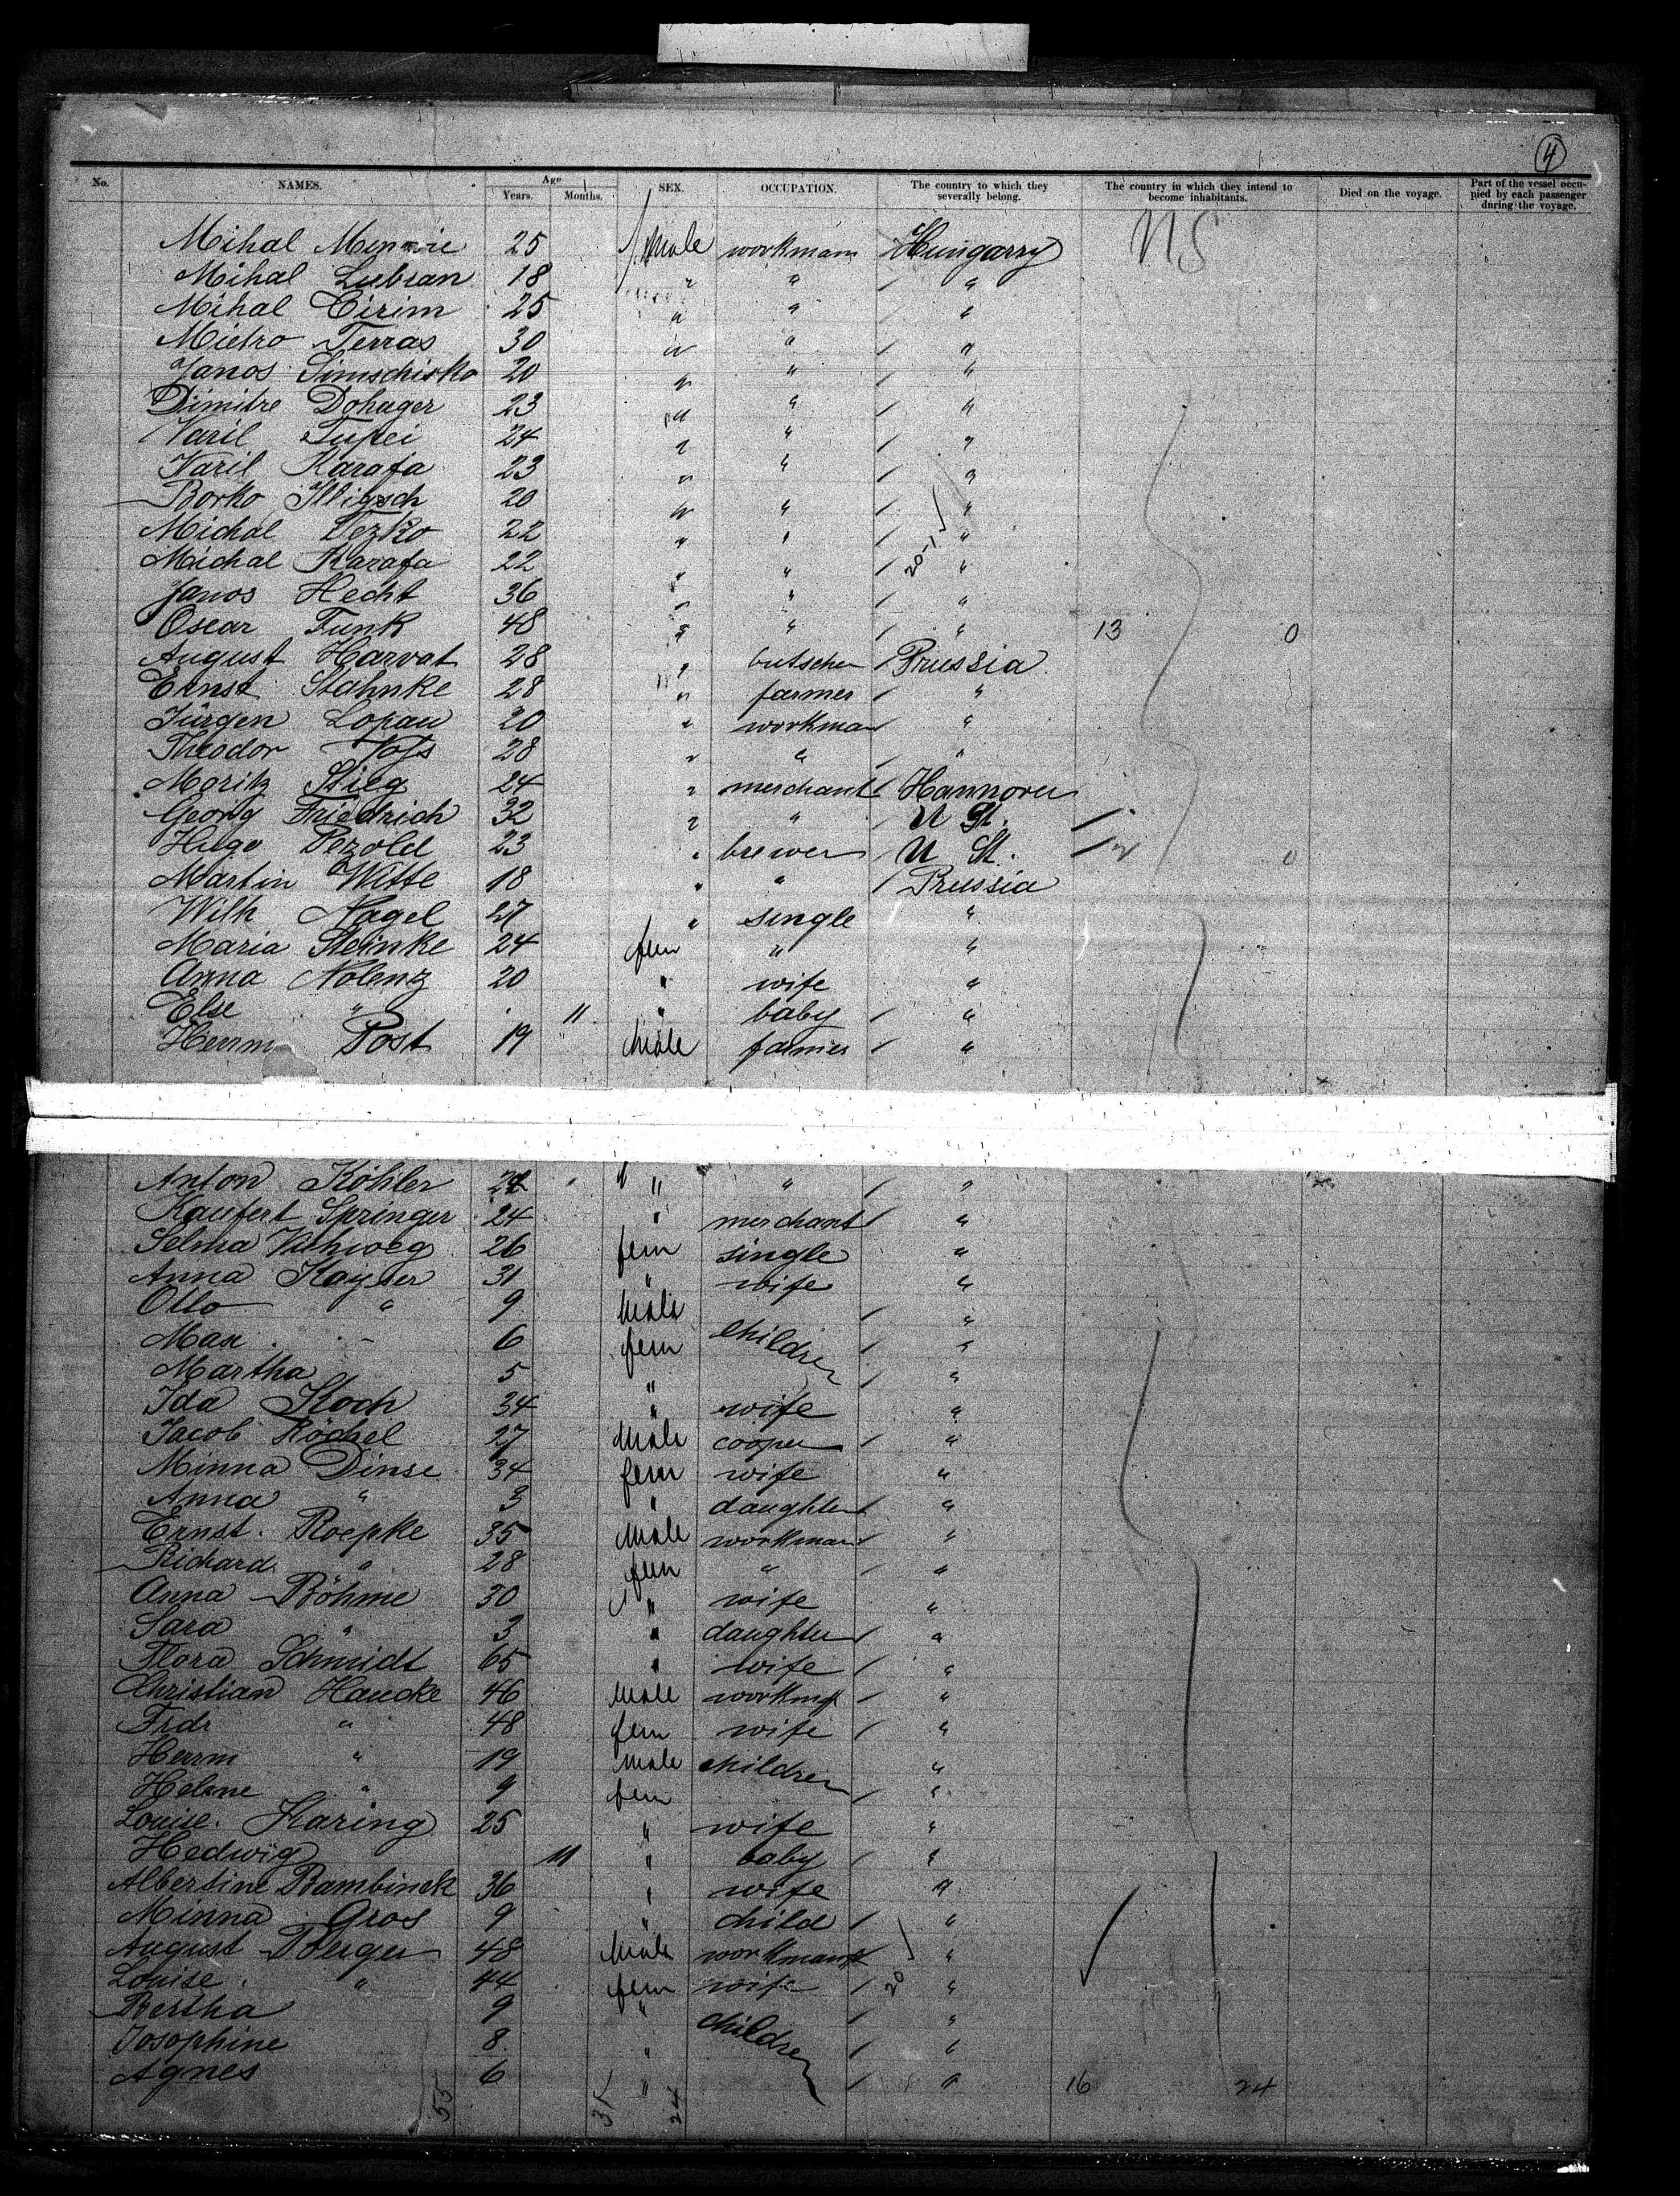 4
No. NAMES. Age Years. Months. SEX. OCCUPATION. The country to which they severally belong. The country in which they intend to become inhabitants. Died on the voyage. Part of the vessel occupied by each passenger during the voyage.
Mihal 25 Male workman Hungarry US
Mihal Lubran 18 " " "
Mihal Cirim 25 " " "
Mietro Terras 30 " " "
Janos Simschisko 20 " " "
Dimitre Dohager 23 " " "
Varil Tupei 24 " " "
Varil Karafa 23 " " "
Borko Illigsch 20 " " "
Michal Tezko 22 " " "
Michal Karafa 22 " " " 20-1
Janos Hecht 36 " " "
Oscar Funk 48 " " " 13 0
August Harvat 28 " butscher Prussia
Ernst Stahnke 28 " farmer "
Jürgen Lopau 20 " workman "
Theodor Voss 28 " " "
Moritz Stieg 24 " merchant Hannover
Georg Friedrich 32 " " U St.
Hugo Pezold 23 " brewer U St. 0
Martin Witte 18 " " Prussia
Wilh Nagel 27 " single "
Maria Steinke 24 fem " "
Anna Nolenz 20 " wife "
Else " 11 " baby "
Herrm Post 19 Male farmer "
Anton Köhler " " "
Kaufert Springer 24 " merchant "
Selma Kuhweg 26 fem single "
Anna Kayser 31 " wife "
Otto " 9 Male "
Max 6 fem children "
Martha 5 " "
Ida Koch 34 " wife "
Jacob Röchel 27 Male cooper "
Minna Dinse 34 fem wife "
Anna " 3 " daughter "
Ernst. Roepke 35 Male workman "
Richard " 28 fem " "
Anna Böhme 30 " wife "
Sara " 3 " daughter "
Flora Schmidt 65 " wife "
Christian Haucke 46 Male workmn "
Frdr " 48 fem wife "
Herrm " 19 Male children "
Helene " 9 fem "
Louise. Haring 25 " wife "
Hedwig 11 " baby "
Albertine Bambinek 36 " wife "
Minna Gros 9 " child "
August Berger 48 Male workman "
Louise " 44 fem wife 20 "
Bertha 9 " "
Josophine 8 " children "
Agnes 6 " " 16 24
55 31 24